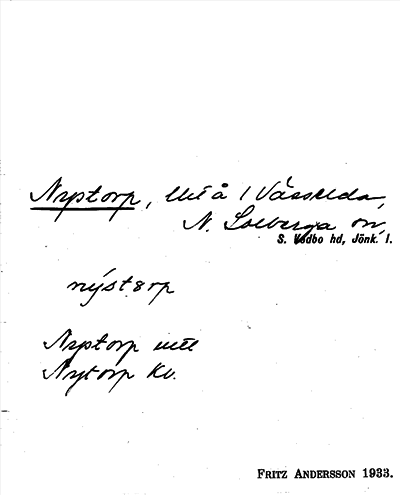 Nystorp, utt å 1 Vässleda,
N. Solberga sn,
S. Vedbo hd, Jönk. l.
nýstorp
Nystorp utt
Nytorp Kv.
FRITZ ANDERSSON 1933.